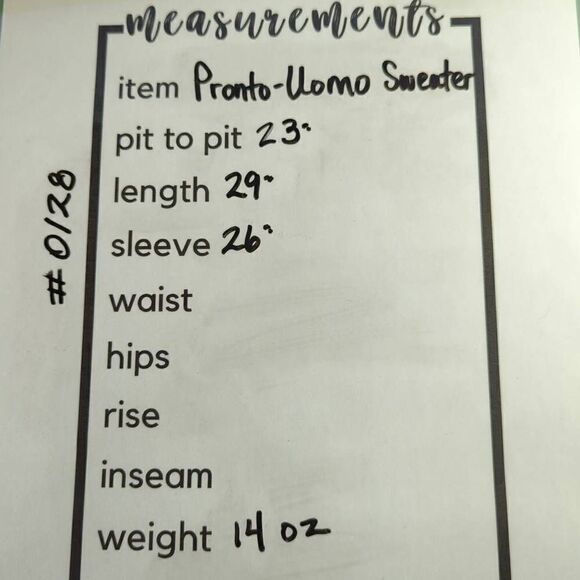 measurements
item Pronto-Uomo Sweater
pit to pit 23"
length 29"
sleeve 26"
waist
hips
rise
inseam
weight 14 oz
#0128